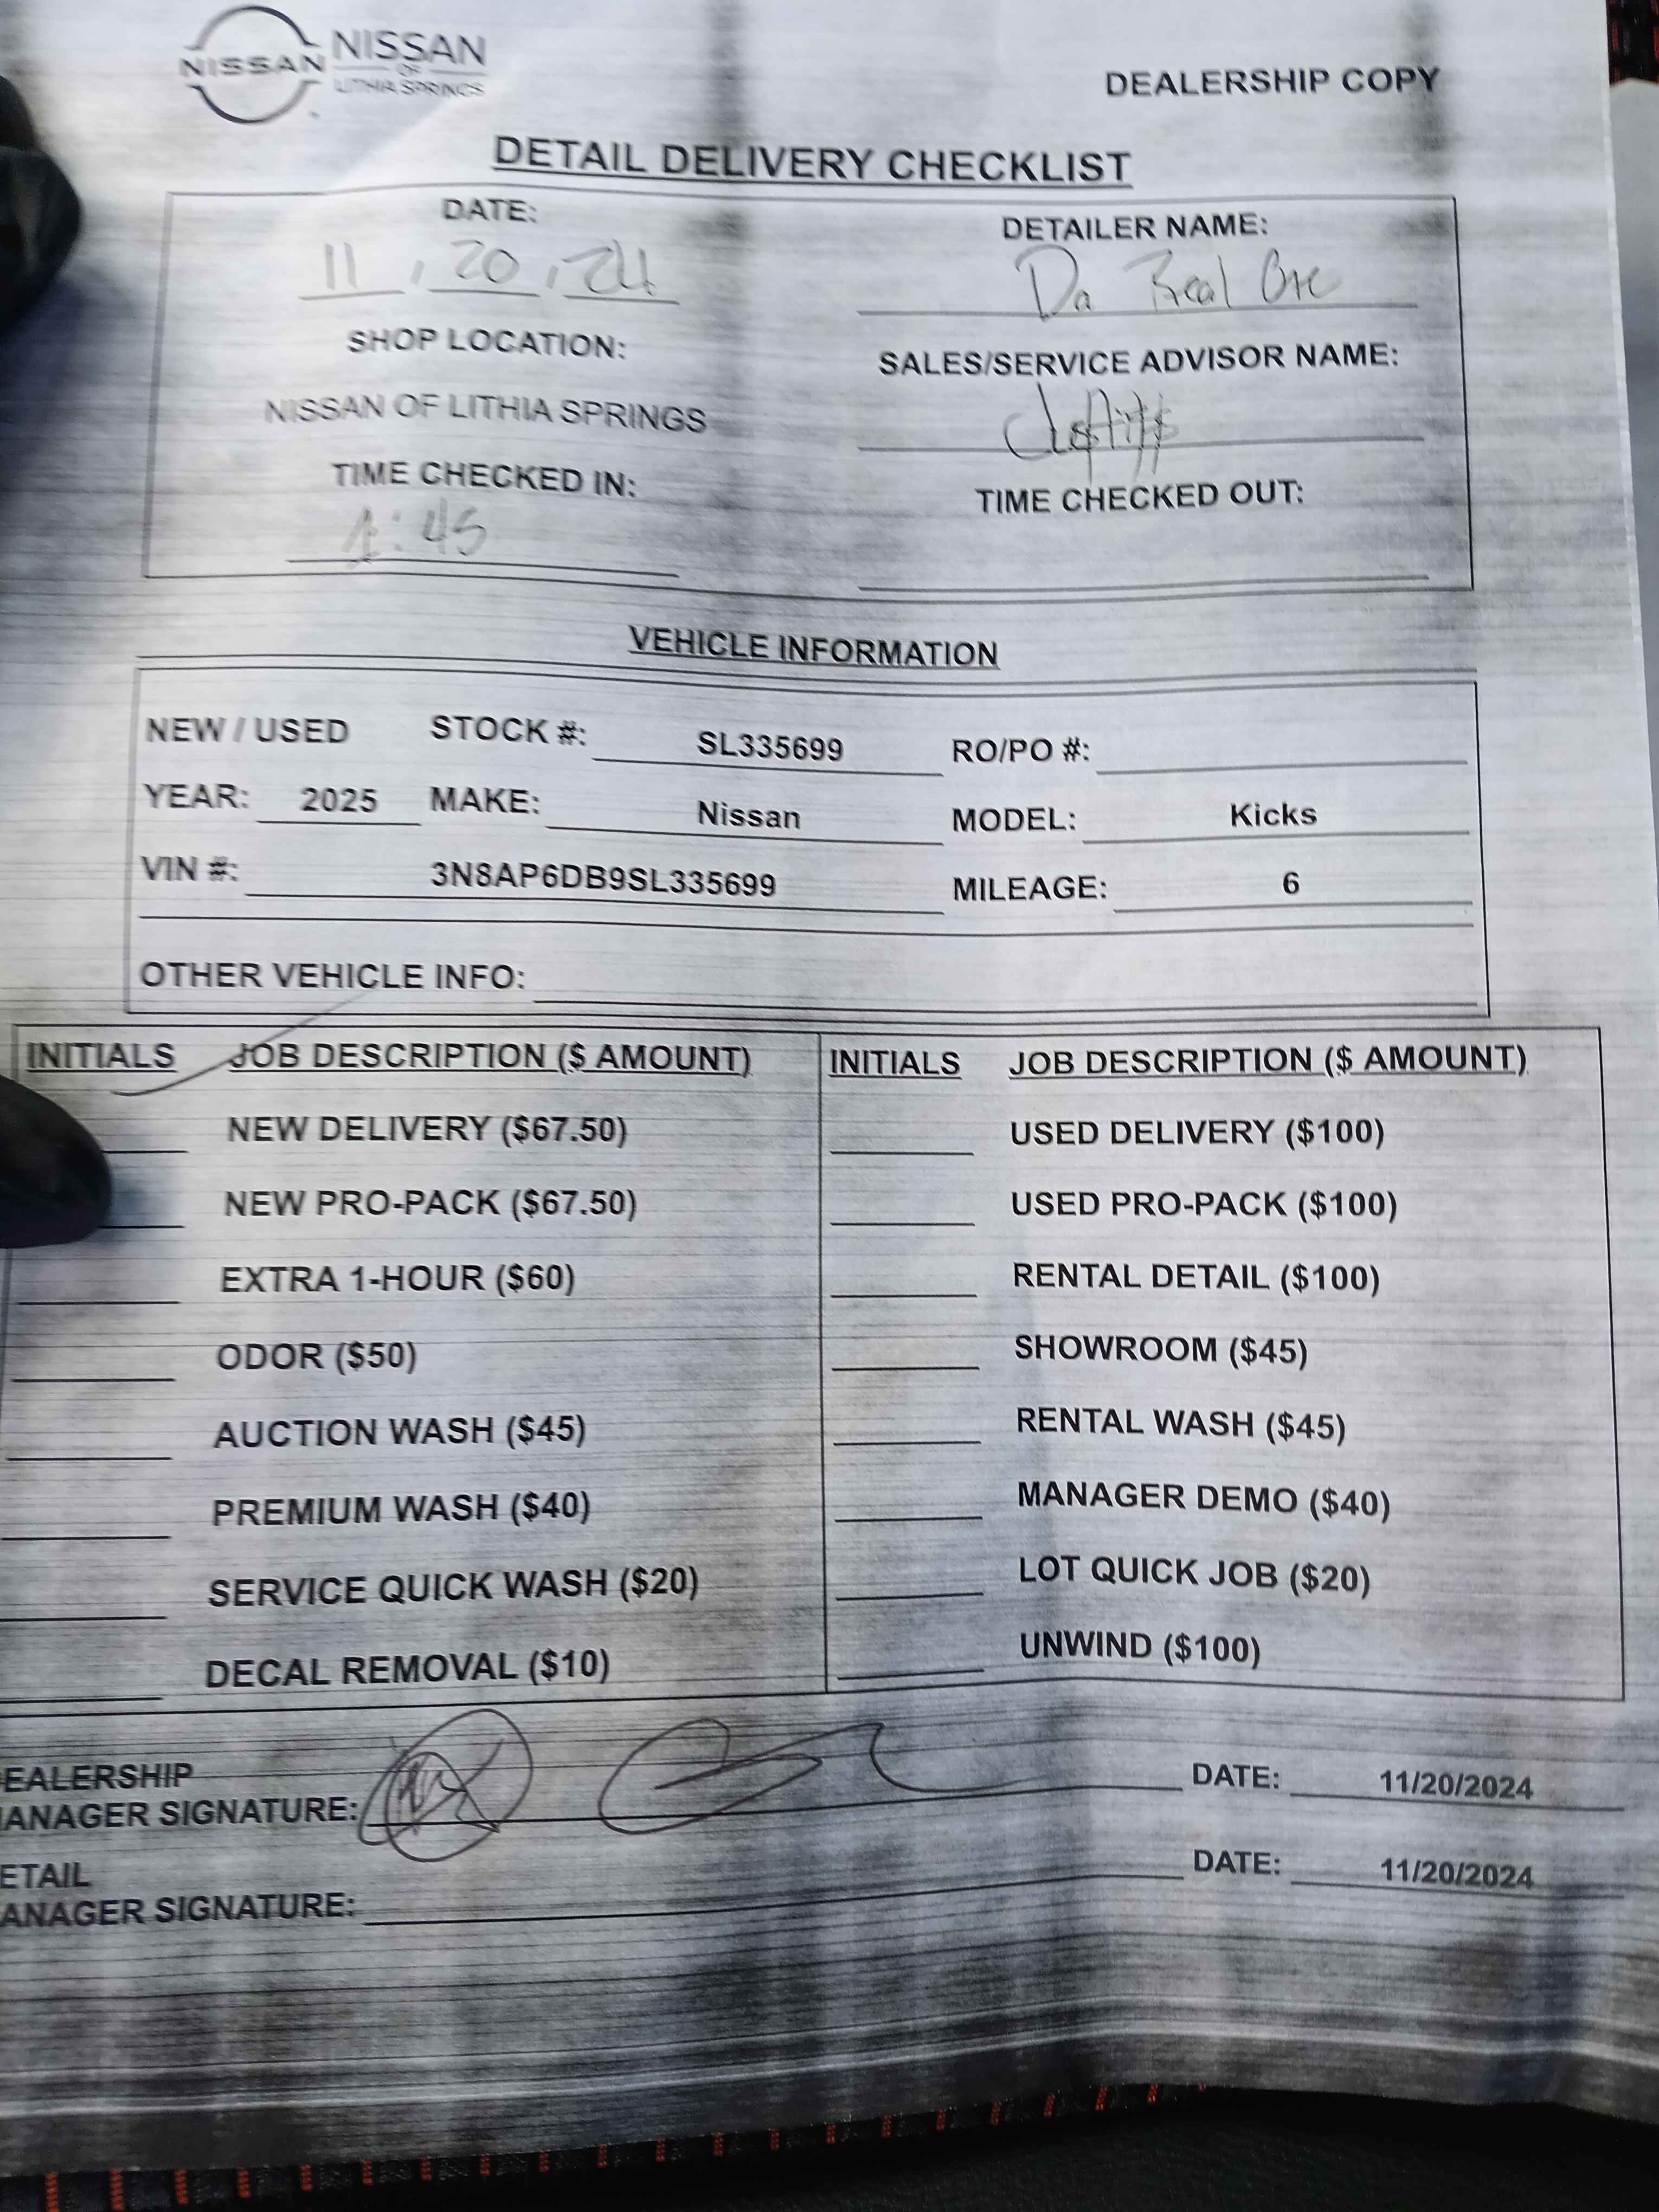 NISSAN NISSAN
OF
LITHIA SPRINGS
DEALERSHIP COPY
DETAIL DELIVERY CHECKLIST
DATE: DETAILER NAME:
11, 20, 24 Da Real
SHOP LOCATION: SALES/SERVICE ADVISOR NAME:
NISSAN OF LITHIA SPRINGS
TIME CHECKED IN: TIME CHECKED OUT:
1:45
VEHICLE INFORMATION
NEW / USED STOCK #: SL335699 RO/PO #:
YEAR: 2025 MAKE: Nissan MODEL: Kicks
VIN #: 3N8AP6DB9SL335699 MILEAGE: 6
OTHER VEHICLE INFO:
INITIALS JOB DESCRIPTION ($ AMOUNT) INITIALS JOB DESCRIPTION ($ AMOUNT)
NEW DELIVERY ($67.50) USED DELIVERY ($100)
NEW PRO-PACK ($67.50) USED PRO-PACK ($100)
EXTRA 1-HOUR ($60) RENTAL DETAIL ($100)
ODOR ($50) SHOWROOM ($45)
AUCTION WASH ($45) RENTAL WASH ($45)
PREMIUM WASH ($40) MANAGER DEMO ($40)
SERVICE QUICK WASH ($20) LOT QUICK JOB ($20)
DECAL REMOVAL ($10) UNWIND ($100)
EALERSHIP
ANAGER SIGNATURE: DATE: 11/20/2024
ETAIL
ANAGER SIGNATURE: DATE: 11/20/2024